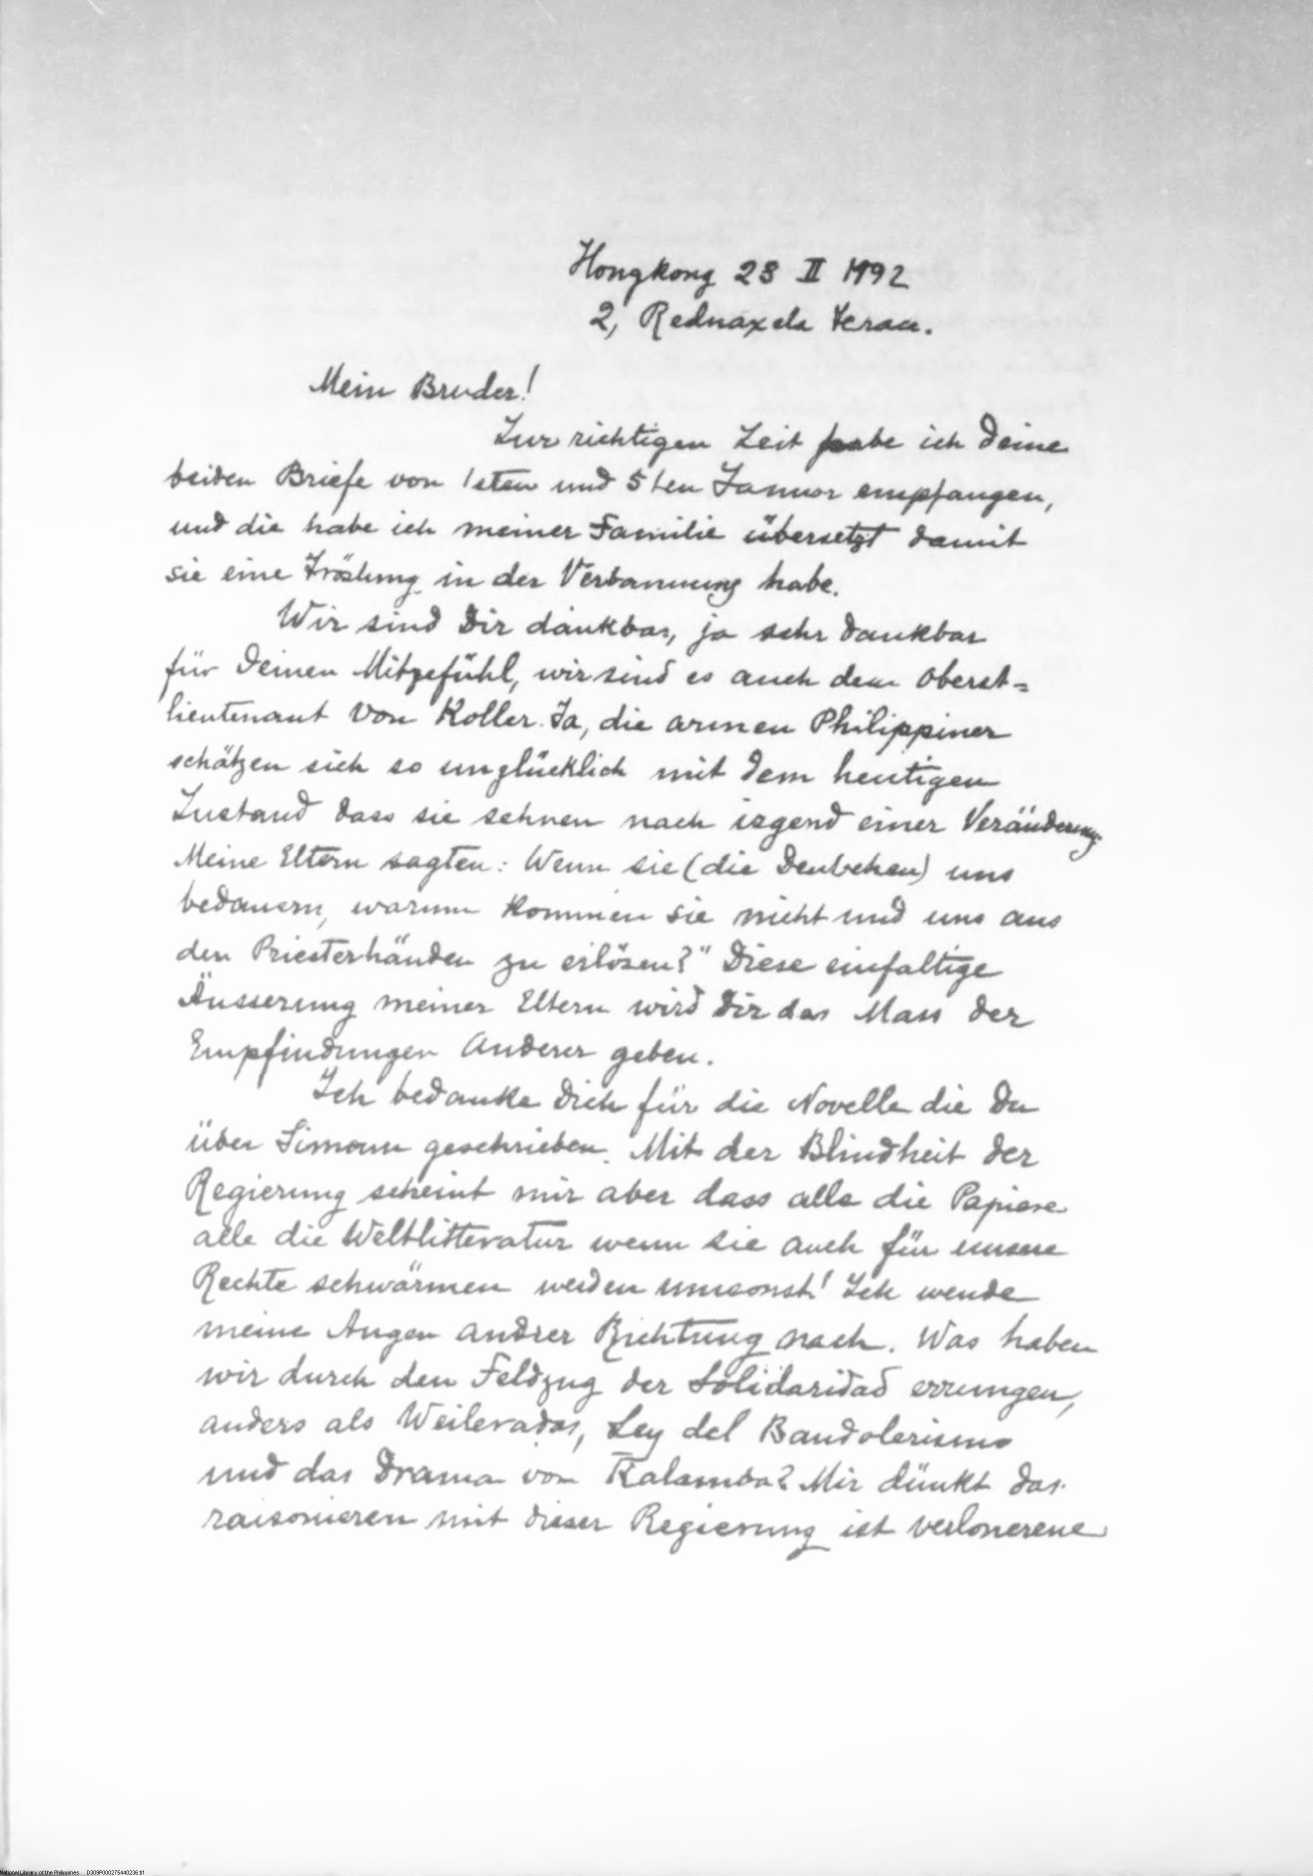 Hongkong 23 II 1892
2, Rednaxela Terace.
Mein Bruder!
Zur richtigen Zeit habe ich Deine
beiden Briefe von 1sten und 5ten Januar empfangen,
und die habe ich meiner Familie übersetzt damit
sie eine Tröstung in der Verbannung habe.
Wir sind Dir dankbar, ja sehr dankbar
für Deinen Mitgefühl, wir sind es auch dem Oberst=
lieutenant Von Koller. Ja, die armen Philippiner
schätzen sich so unglücklich mit dem heutigen
Zustand dass sie sehnen nach irgend einer Veränderung.
Meine Eltern sagten: Wenn sie (die Deutschen) uns
bedauern, warum kommen sie nicht und uns aus
den Priesterhänden zu erlösen?" Diese einfaltige
Äusserung meiner Eltern wird Dir das Mass der
Empfindungen Anderer geben.
Ich bedanke Dich für die Novelle die Du
über Simoun geschrieben. Mit der Blindheit der
Regierung scheint mir aber dass alle die Papiere
alle die Weltlitteratur wenn sie auch für unsere
Rechte schwärmen werden umsonst! Ich wende
meine Augen andrer Richtung nach. Was haben
wir durch den Feldzug der Solidaridad errungen,
anders als Weileradas, Ley del Bandolerismo
und das Drama von Kalamba? Mir dünkt das
raisonieren mit dieser Regierung ist verlonerene
National Library of the Philippines